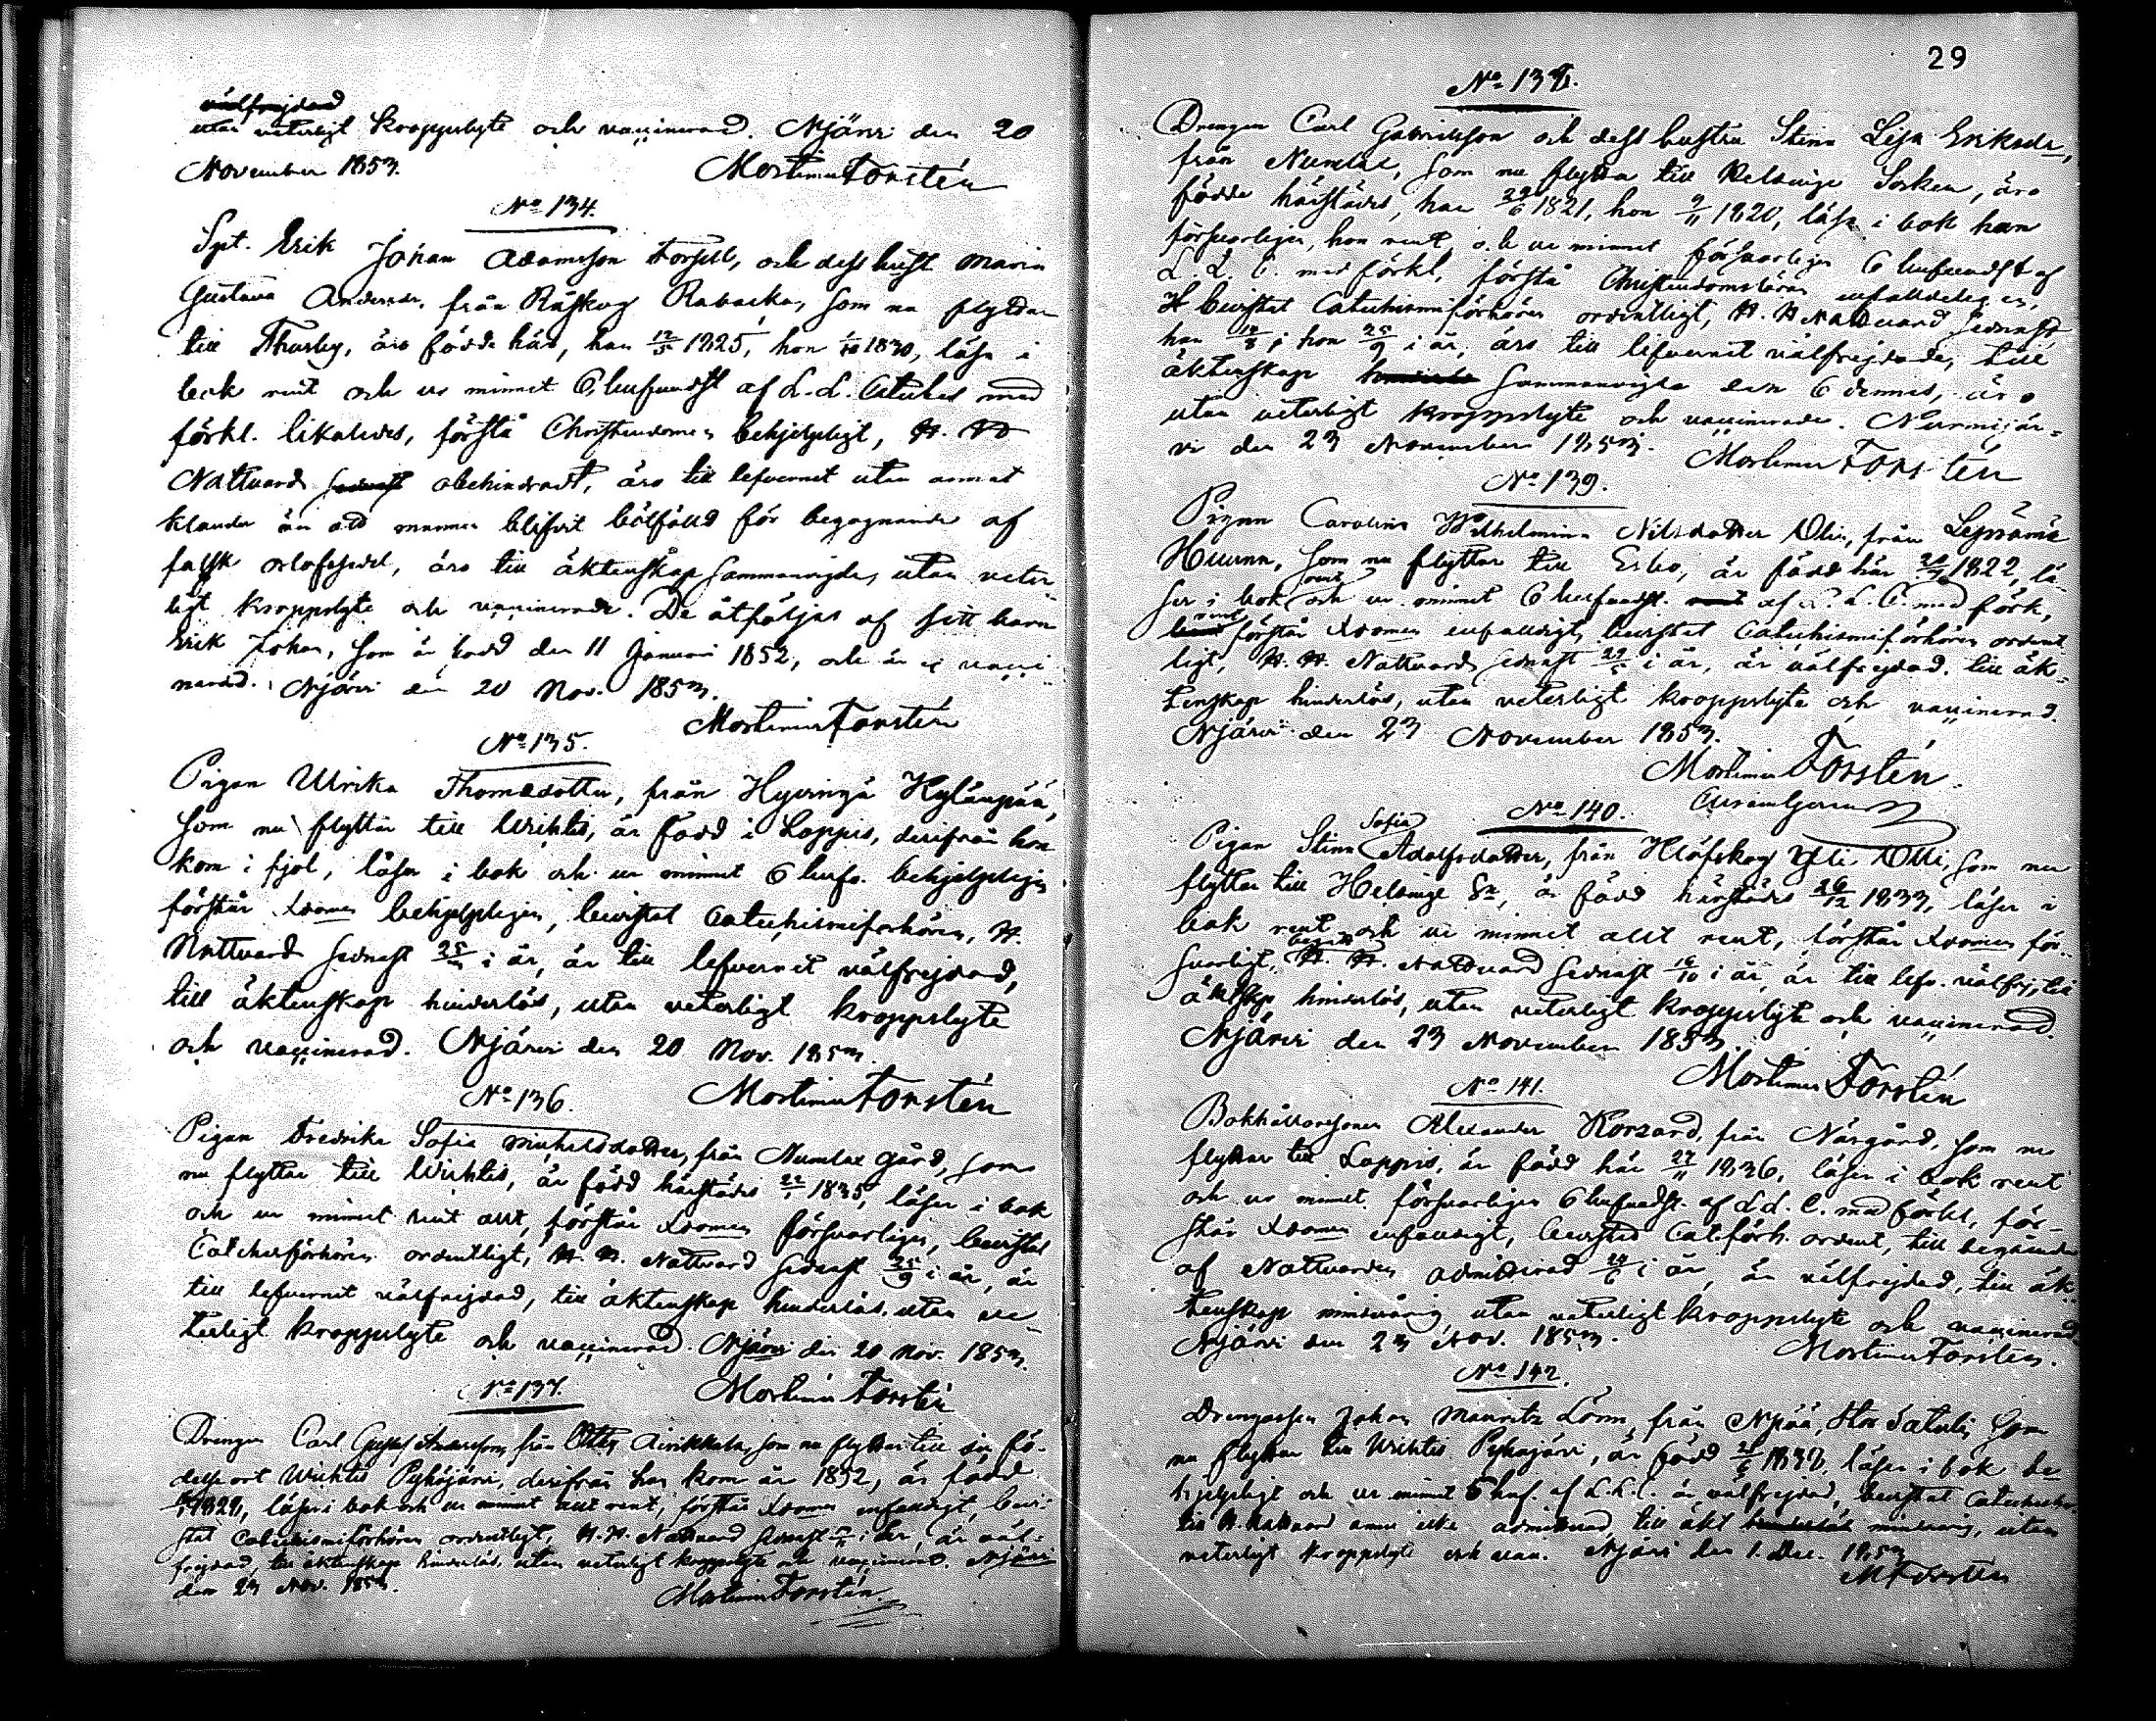 utan veterligt kroppslyte och vaccinerad. Njärvi den 20
November 1853.
Mortimer Forstén
No 134.
Sytt. Erik Johan Adamsson Forsell, och dess hust. Maria
Gustava Andersdr. från Råskog Rabacka, som nu flyttar
till Thusby, äro födde här, han 12/5 1825, hon 1/10 1830, läsa i
bok rent och ur minnet 6 hufvudst. af L. L. Cateches med
förkl. likaledes, förstå Christendomen behjelpligt, H. H.
Nattvard obehindradt, äro till lefvernet utan annat
klander än att mannen blifvit bötfälld för begagnande af
falsk orlofssedel, äro till äktenskap sammanvigde, utan veter-
ligt kroppslyte och vaccinerade. De åtföljas af sitt barn
Erik Johan, som är född den 11 Januari 1852, och är ej vacci-
nerad. Njärvi den 20 Nov. 1853.
Mortimer Forstén
No 135.
Pigan Ulrika Thomasdotter, från Hyvinge Kyläupää,
som nu flyttar till Wichtis, är född i Loppis, derifrån hon
kom i fjol, läser i bok och ur minnet 6 hufv. behjelpligen
förstår Xdomen behjelpligen, bevistat Catechismiförhören, H.
Nattvard sednast i år, är till lefvernet välfrejdad,
till äktenskap hinderlös, utan veterligt kroppslyte
och vaccinerad. Njärvi den 20 Nov. 1853.
Mortimer Forstén
No 136.
Pigan Fredrika Sofia Michelsdotter, från Numlax gård, som
nu flyttar till Wichtis, är född härstädes 22/1 1835, läser i bok
och ur minnet rent allt, förstår Xdomen försvarligen, bevistat
Catechesförhören ordentligt, H. H. Nattvard sednast 25/9 i år, är
till lefvernet välfrejdad, till äktenskap hinderlös, utan ve-
terligt kroppslyte och vaccinerad. Njärvi den 20 Nov. 1853.
Mortimer Forstén
No 137.
Drengen Carl Gustaf Andersson, från Ahikkala, som nu flyttar till sin fö-
delseort Wichtis Pyhäjärvi, derifrån han kom år 1852, är född
1828, läser i bok och ur minnet allt rent, förstår Xdomen enfaldigt, bevi-
stat Catechismiförhören ordentligt, H. H. Nattvard sednast i år, är väl-
frejdad, till äktenskap hinderlös, utan veterligt kroppslyte och vaccinerad. Njärvi
den 23 Nov. 1853.
Mortimer Forstén
29
No 138.
Drengen Carl Gabrielsson och dess hustru Stina Lisa Eriksdr,
från Numlax, som nu flytta till Helsinge Socken, äro
födde härstädes, han 29/6 1821, hon 9/11 1820, läsa i bok han
försvarligen, hon rent, och ur minnet försvarligen 6 hufvudst af
L. L. C. med förkl, förstå Christendomsläran enfaldeligen,
bevistat Catechismiförhören ordentligt, H. H. Nattvard sednast,
han hon 25/9 i år, äro till lefvernet välfrejdade, till
äktenskap sammanvigde den 6 dennes, äro
utan veterligt kroppslyte och vaccinerade. Nurmijär-
vi den 23 November 1853.
Mortimer Forstén
No 139.
Pigan Carolina Wilhelmina Nilsdotter Olin, från Lepsämä
Huunna, som nu flyttar till Esbo, är född här 1822, lä-
ser i bok rent och ur minnet 6 hufvudst. af L. L. C. med förk,
rent förstår Xdomen enfaldigt, bevistat Catechismiförhören ordent-
ligt, H. H. Nattvard sednast i år, är välfrejdad. till äk-
tenskap hinderlös, utan veterligt kroppslyte och vaccinerad.
Njärvi den 23 November 1853.
Mortimer Forstén
No 140.
Pigan Stina Sofia Adolfsdotter, från Klöfskog Yli Olli, som nu
flyttar till Helsinge Sn, är född härstädes 26/12 1833, läser i
bok rent och ur minnet allt rent, förstår Xdomen för-
svarligt, H. H. Nattvard sednast 16/10 i år, är till lefv. välfrej, till
äktskp hinderlös, utan veterligt kroppslyte och vaccinerad.
Njärvi den 23 November 1853
Mortimer Forstén
No 141.
Bokhållaresonen Alexander Korzard, från Närgård, som nu
flyttar till Loppis, är född här 27/11 1836, läser i bok rent
och ur minnet försvarligen 6 hufvudst. af L. L. C. med förkl, för-
står Xdomen enfaldigt, bevistat Cat.förh. ordent, till begående
af Nattvarden admitterad i år, är välfrejdad, till äk-
tenskap minderårig, utan veterligt kroppslyte och vaccinerad.
Njärvi den 23 Nov. 1853.
Mortimer Forstén.
No 142.
Drengassen Johan Mauritz Lönn, från Nypää, Stor Satuli, som
nu flyttar till Wichtis Pyhäjärvi, är född 1838, läser i bok be-
hjelpligt och ur minnet 5 huf. af L. L. C. är välfrejdad, bevistat Catechesför.
till H. Nattvard ännu icke admitterad, till äkt minderårig, utan
veterligt kroppslyte och vacc. Njärvi den 1. Dec. 1853
M Forstén